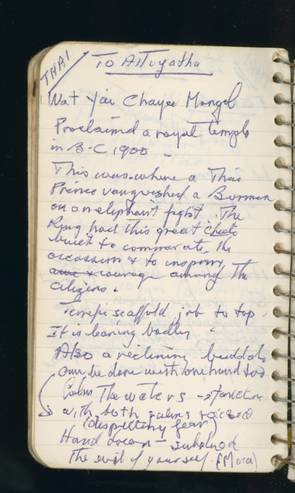 THAI
TO AItuyatha
Wat Yai Chayee Mongol
Proclaimed a royal temple
in B-C 1900
This was where a Thai
Prince vanguished a Burman
on an elephant fight. The
King had this great Chedi
built to commorate the
occassion & to inspire
courage among the
citizens.
scaffold job to top
It is leaning badly
Also a reclining buddah
can be done with one hand too
Calms the waters - standing
with both palms raised
(dispelling fear)
Hand down - subdued
the evil of yourself (Mara)